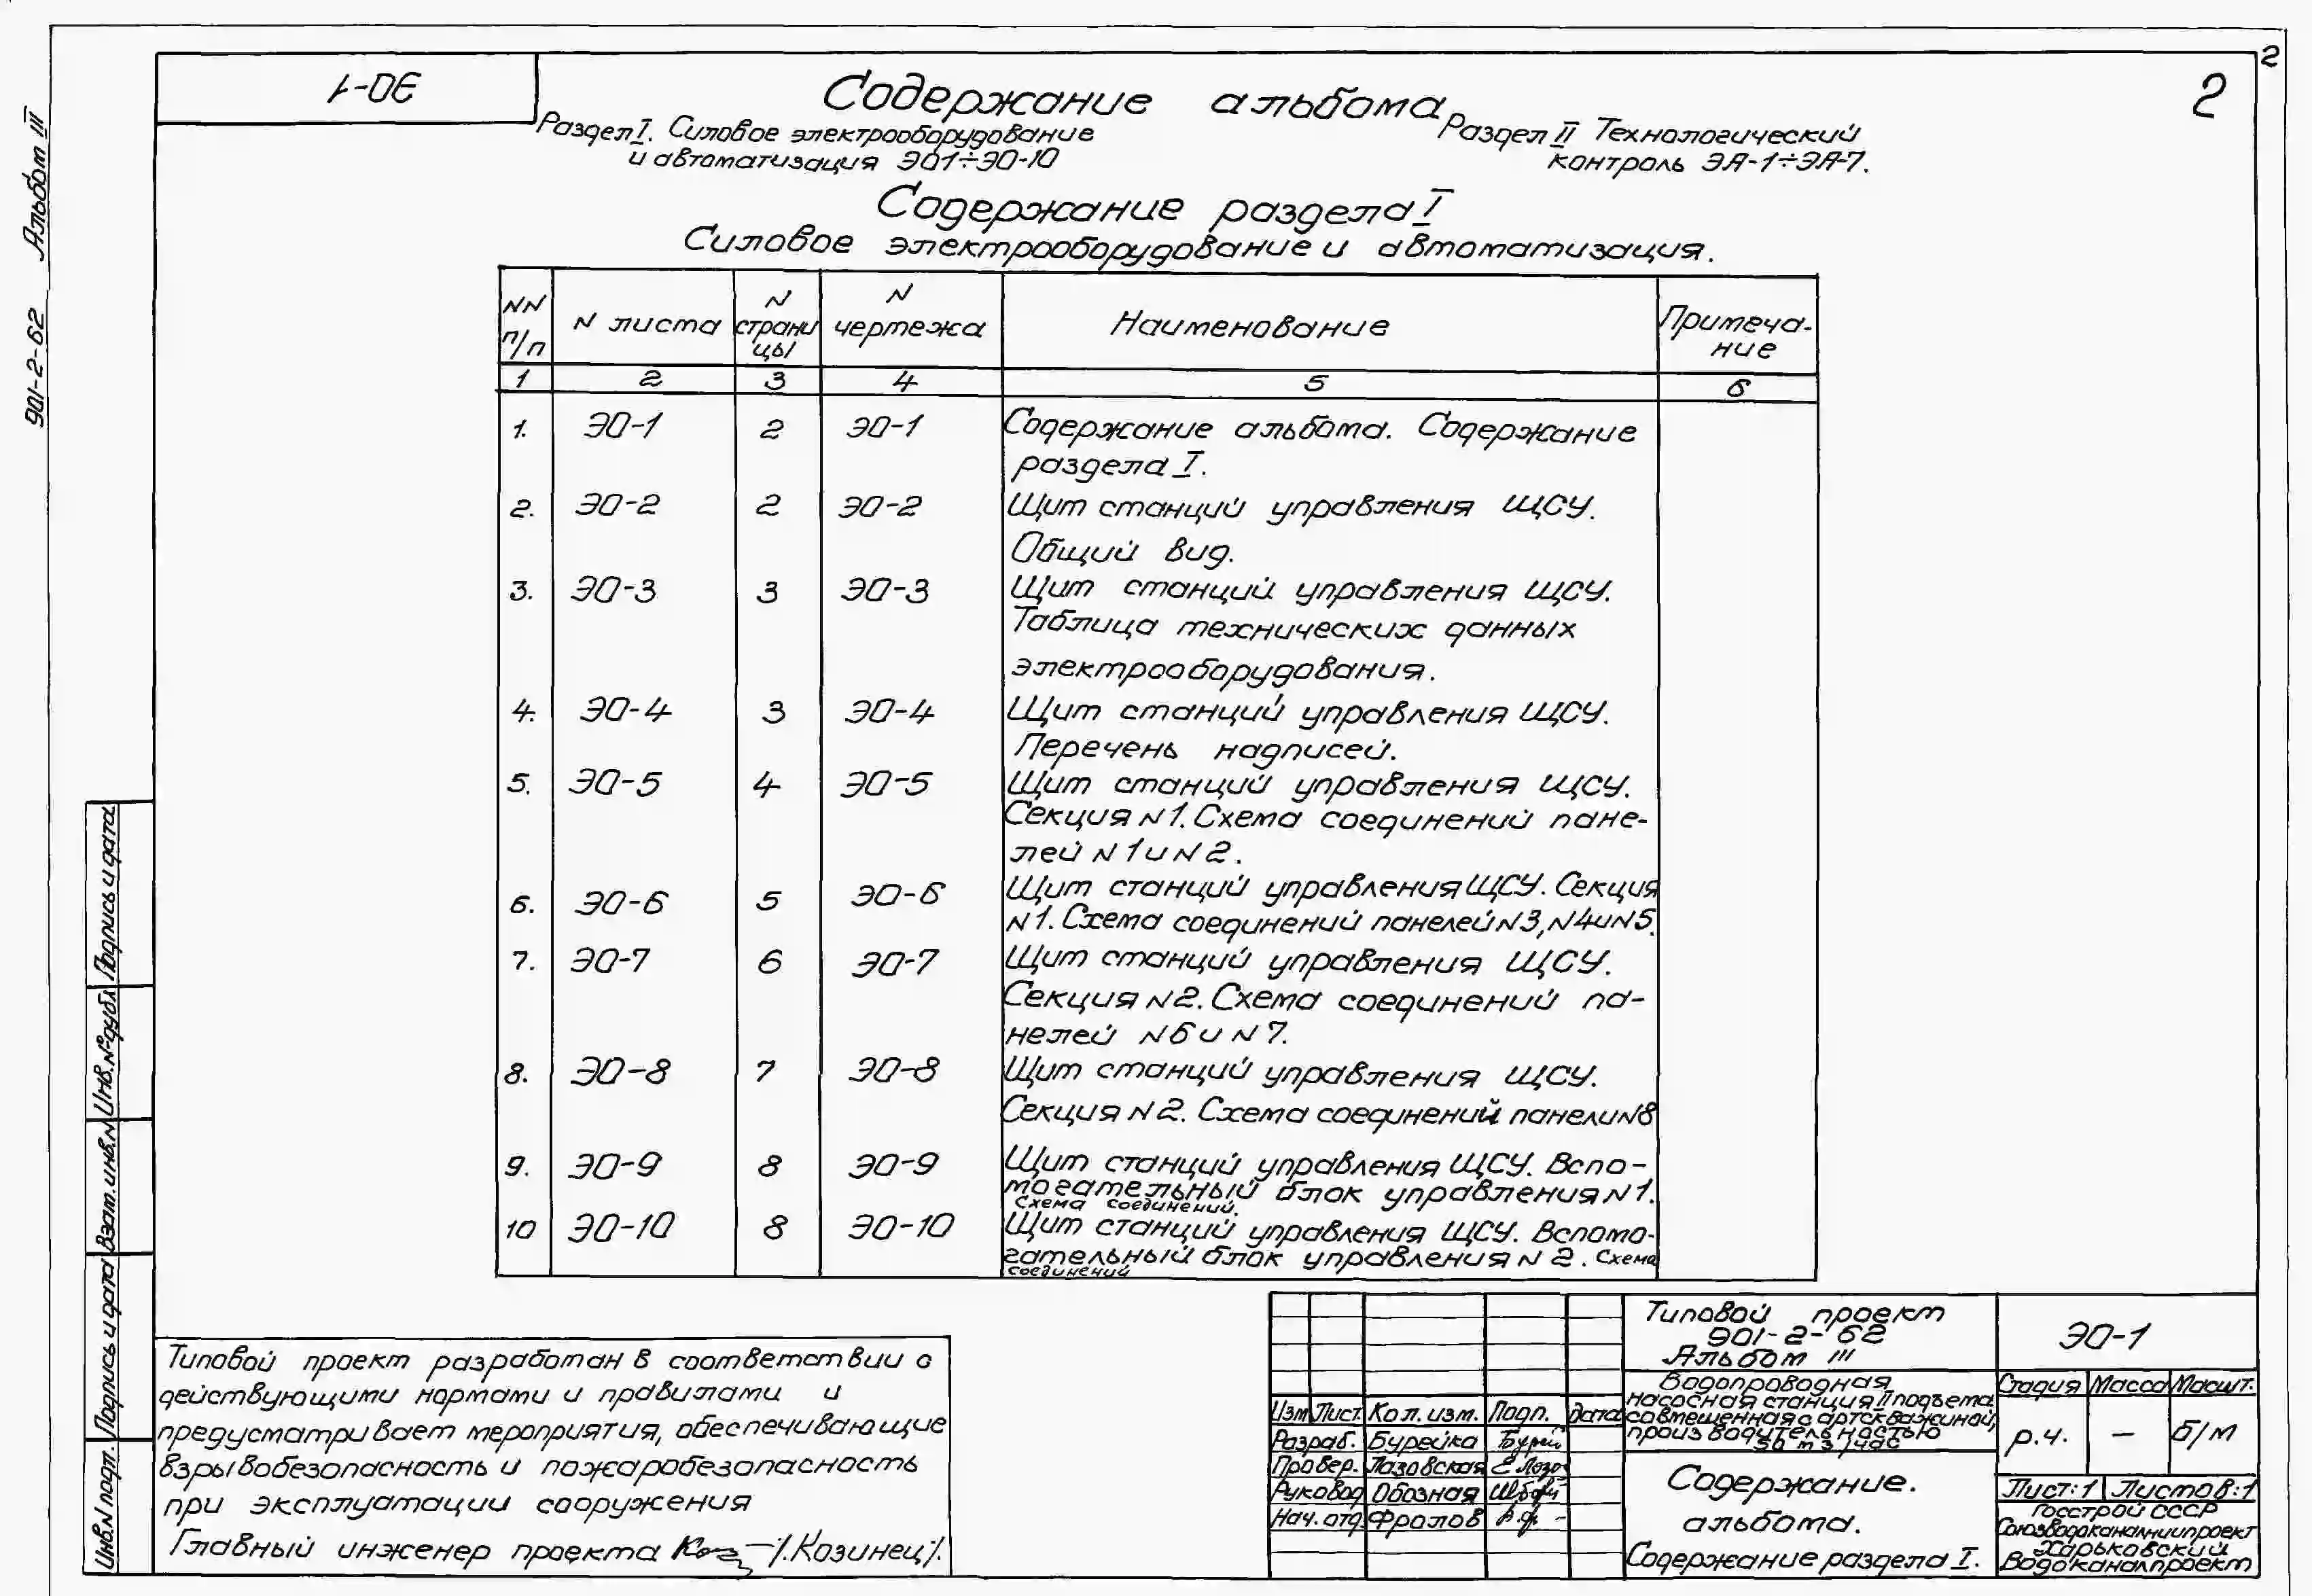 2
ЭО-1
2
Содержание альбома
Раздел I. Силовое электрооборудование
и автоматизация ЭО1÷ЭО-10
Раздел II Технологический
контроль ЭА-1÷ЭА-7.
Содержание раздела I
Силовое электрооборудование и автоматизация.
901-2-62 Альбом III
NN п/п | N листа | N страни цы | N чертежа | Наименование | Примеча- ние
1 2 3 4 5 6
1. ЭО-1 2 ЭО-1 Содержание альбома. Содержание
раздела I.
2. ЭО-2 2 ЭО-2 Щит станций управления ЩСУ.
Общий вид.
3. ЭО-3 3 ЭО-3 Щит станций управления ЩСУ.
Таблица технических данных
электрооборудования.
4. ЭО-4 3 ЭО-4 Щит станций управления ЩСУ.
Перечень надписей.
5. ЭО-5 4 ЭО-5 Щит станций управления ЩСУ.
Секция N1. Схема соединений пане-
лей N1 и N2.
6. ЭО-6 5 ЭО-6 Щит станций управления ЩСУ. Секция
N1. Схема соединений панелей N3, N4 и N5.
7. ЭО-7 6 ЭО-7 Щит станций управления ЩСУ.
Секция N2. Схема соединений па-
нелей N6 и N7.
8. ЭО-8 7 ЭО-8 Щит станций управления ЩСУ.
Секция N2. Схема соединений панели N8
9. ЭО-9 8 ЭО-9 Щит станций управления ЩСУ. Вспо-
могательный блок управления N1.
Схема соединений.
10 ЭО-10 8 ЭО-10 Щит станций управления ЩСУ. Вспомо-
гательный блок управления N2. Схема
соединений
Подпись и дата
Инв.№ дубл
Взам. инв.N
Подпись и дата
Инв.N подл.
Типовой проект разработан в соответствии с
действующими нормами и правилами и
предусматривает мероприятия, обеспечивающие
взрывобезопасность и пожаробезопасность
при эксплуатации сооружения
Главный инженер проекта /.Козинец/.
Изм Лист. Кол.изм. Подп. Дата
Разраб. Бурейка
Провер. Лазовская
Руковод Обозная
Нач.отд. Фролов
Типовой проект
901-2-62
Альбом III
ЭО-1
Водопроводная
насосная станция II подъема,
совмещенная с артскважиной,
производительностью
36 м3/час
Стадия Масса Масшт.
р.ч. — б/м
Лист:1 Листов:1
Содержание.
альбома.
Содержание раздела I.
Госстрой СССР
Союзводоканалниипроект
Харьковский
Водоканалпроект